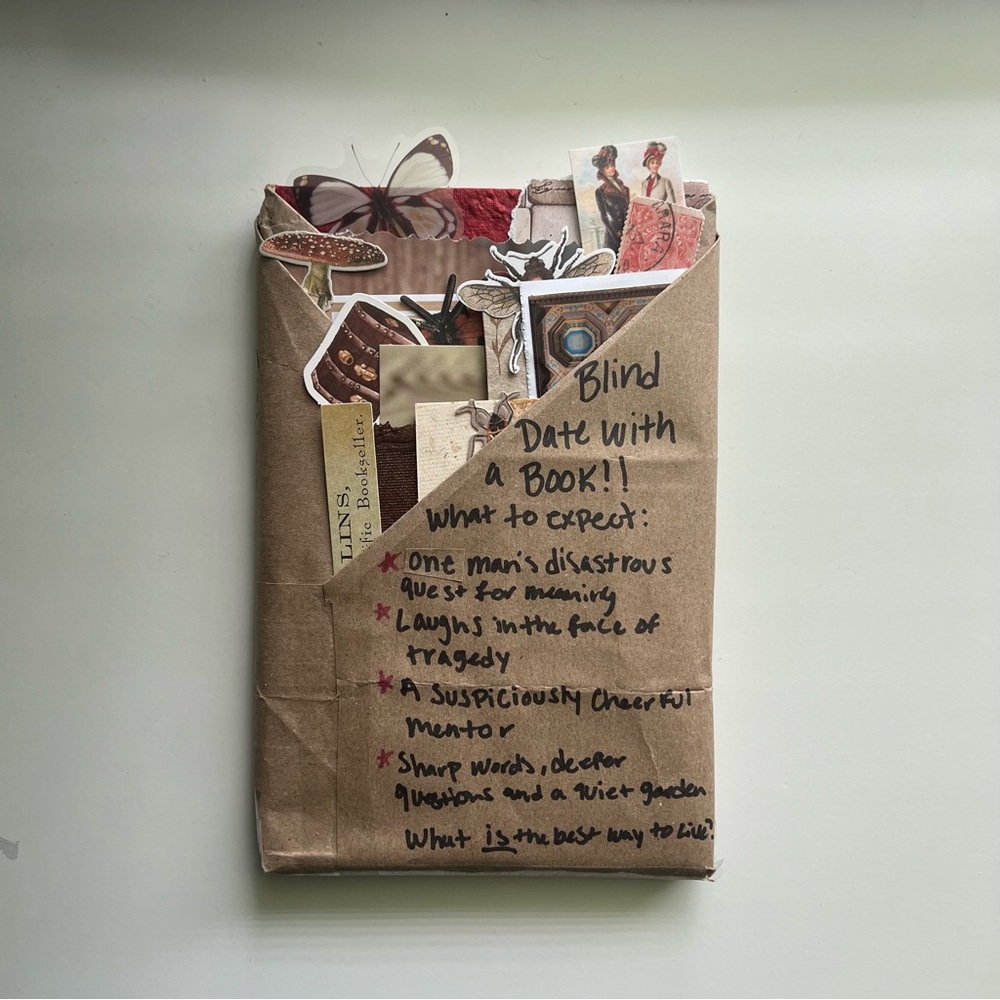 Blind
Date with
a Book!!
What to expect:
* One man's disastrous
quest for meaning
* Laughs in the face of
tragedy
* A suspiciously cheerful
mentor
* Sharp words, deeper
questions and a quiet garden
What is the best way to live?
LINS,
fic Bookseller.